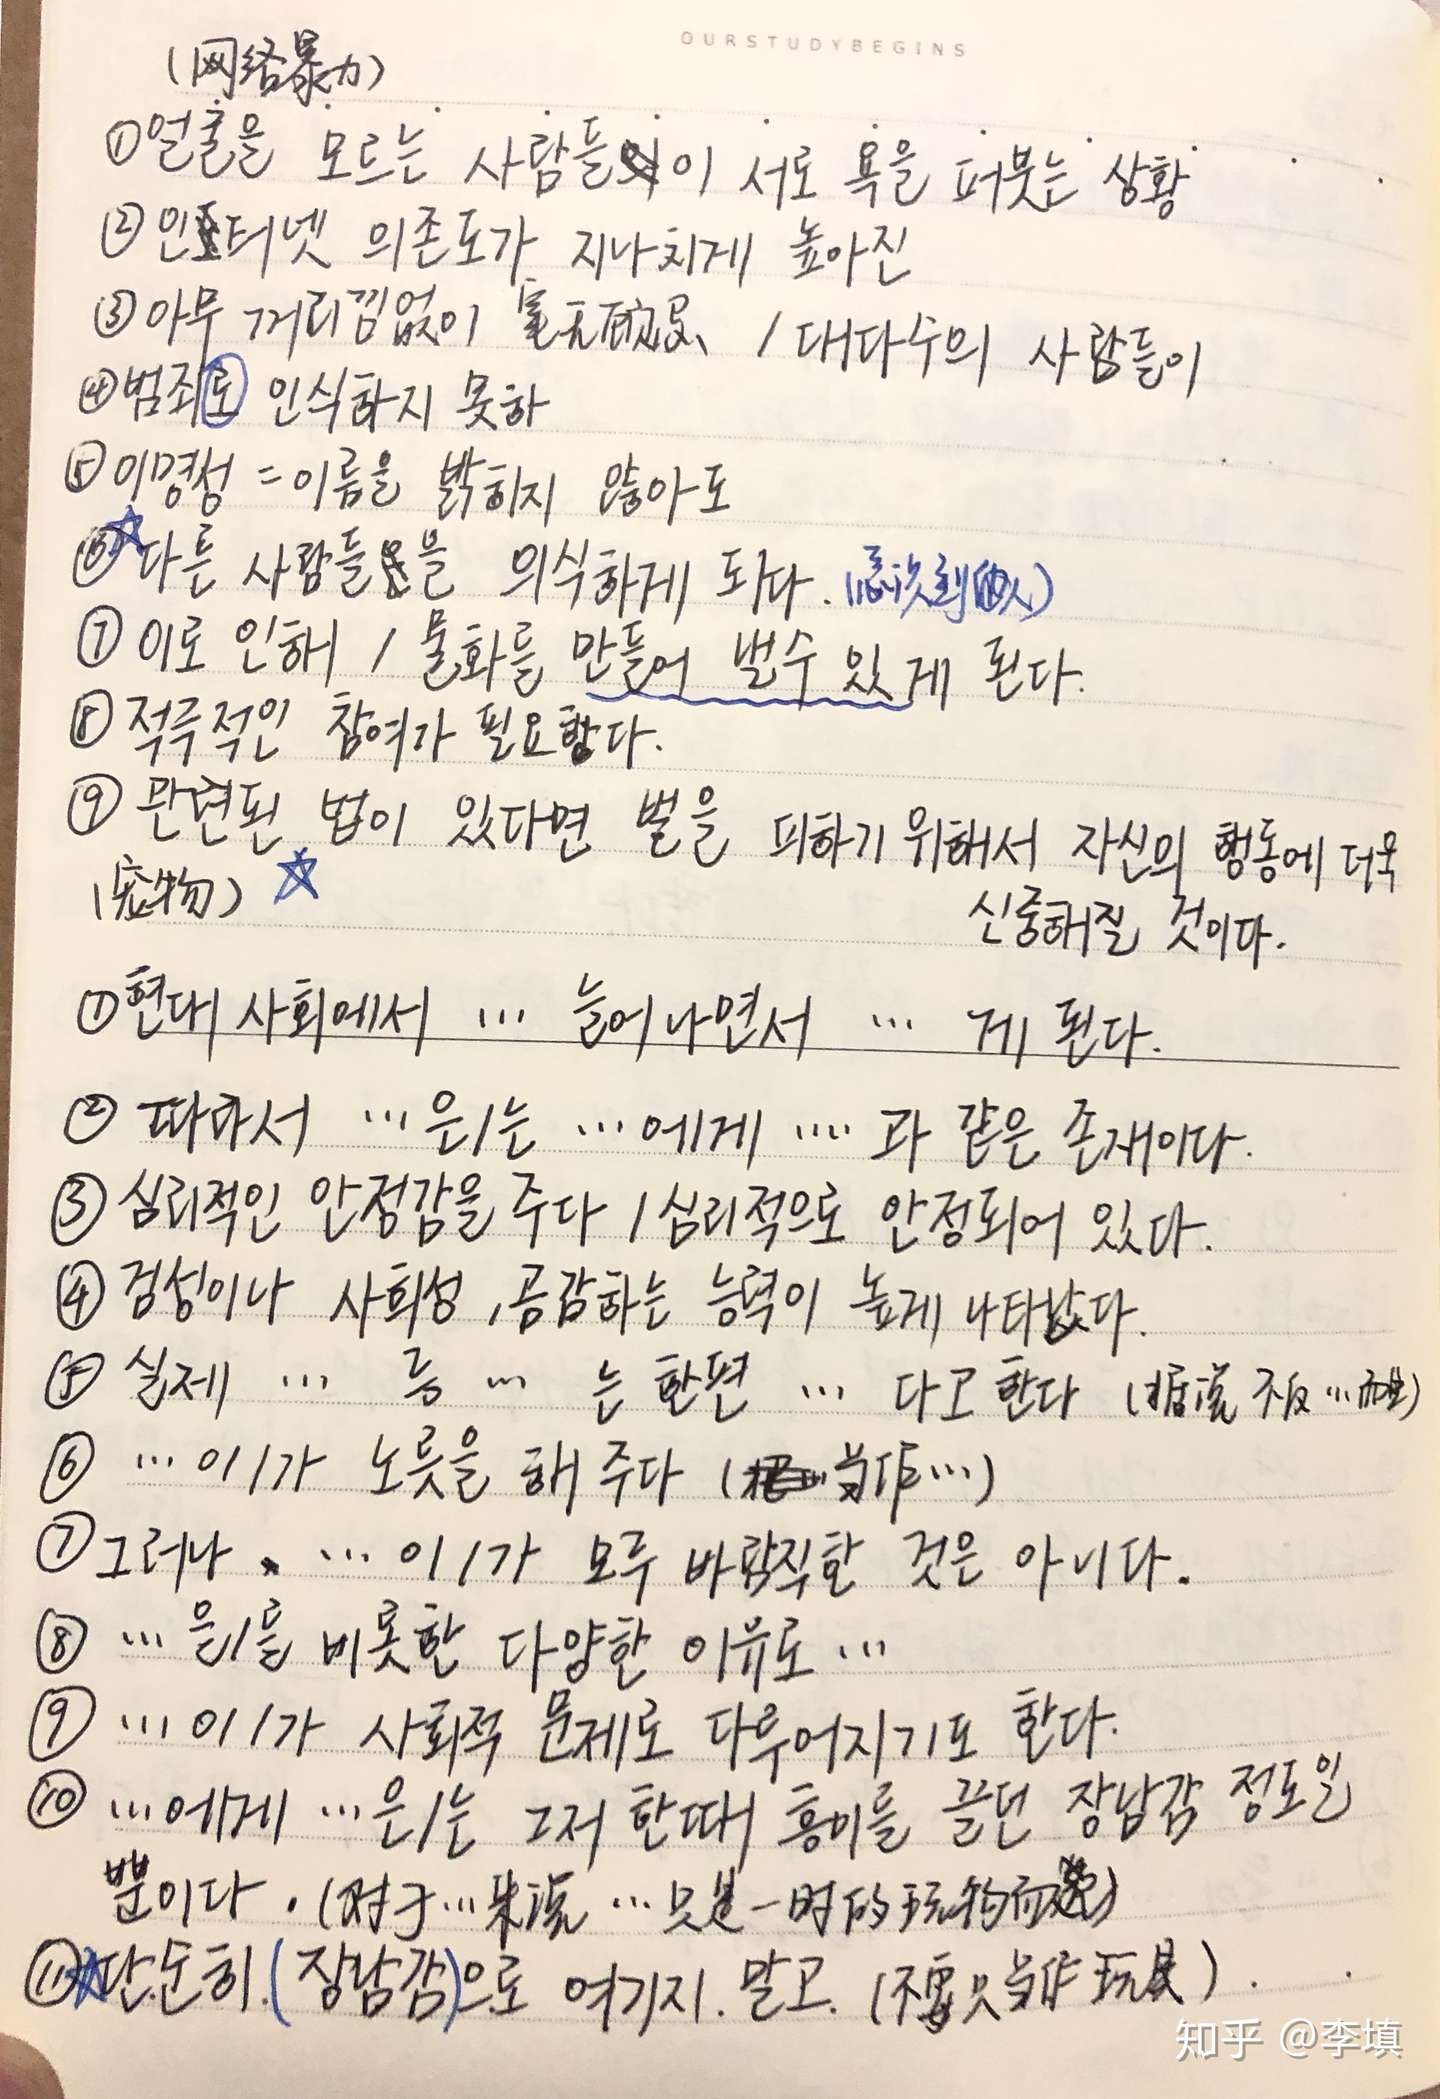 OURSTUDYBEGINS
(网络暴力)
①얼굴을 모르는 사람들이 서로 욕을 퍼붓는 상황
②인터넷 의존도가 지나치게 높아진
③아무 거리낌없이 毫无顾忌、/대다수의 사람들이
④범죄로 인식하지 못하
⑤이명성 = 이름을 밝히지 않아도
⑥☆다른 사람들을 의식하게 되다. (意识到他人)
⑦이로 인해 / 물화를 만들어 낼수 있게 된다.
⑧적극적인 참여가 필요하다.
⑨관련된 법이 있다면 벌을 피하기 위해서 자신의 행동에 더욱
신중해질 것이다.
(宠物) ☆
①현대 사회에서 … 늘어나면서 … 게 된다.
②따라서 …은/는 …에게 …과 같은 존재이다.
③심리적인 안정감을 주다 / 심리적으로 안정되어 있다.
④검성이나 사회성, 공감하는 능력이 높게 나타났다.
⑤실제 … 등 … 는 한편 … 다고 한다 (据说 不仅…而且)
⑥ …이/가 노릇을 해 주다 (当作…)
⑦그러나, …이/가 모두 바람직한 것은 아니다.
⑧ …은/를 비롯한 다양한 이유로 …
⑨ …이/가 사회적 문제로 다루어지기도 한다.
⑩ …에게 …은/는 그저 한때 흥미를 끌던 장난감 정도일
뿐이다. (对于…来说 …只是一时的玩物而已)
⑪☆단순히 (장남감)으로 여기지 말고. (不要只当作玩具).
知乎 @李填